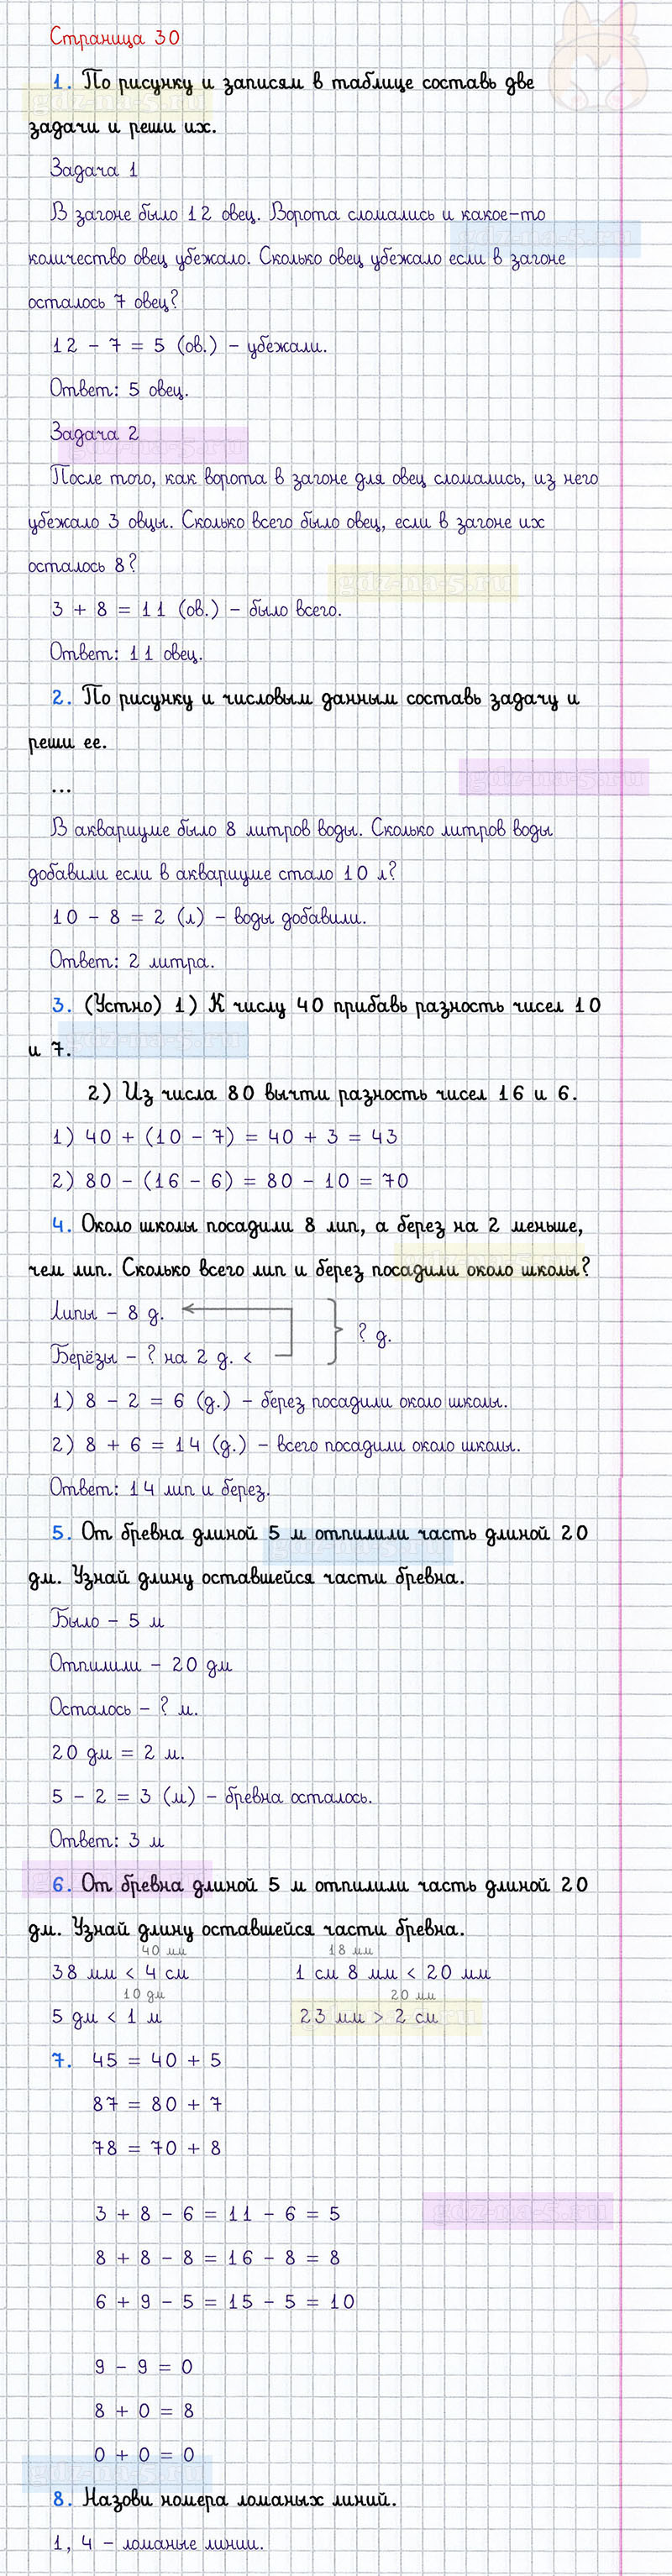 Страница 30
1. По рисунку и записям в таблице составь две
задачи и реши их.
gdz-na-5.ru
Задача 1
В загоне было 12 овец. Ворота сломались и какое-то
gdz-na-5.ru
количество овец убежало. Сколько овец убежало если в загоне
осталось 7 овец?
12 - 7 = 5 (ов.) - убежали.
Ответ: 5 овец.
Задача 2
gdz-na-5.ru
После того, как ворота в загоне для овец сломались, из него
убежало 3 овцы. Сколько всего было овец, если в загоне их
осталось 8?
gdz-na-5.ru
3 + 8 = 11 (ов.) - было всего.
Ответ: 11 овец.
2. По рисунку и числовым данным составь задачу и
реши ее.
gdz-na-5.ru
...
В аквариуме было 8 литров воды. Сколько литров воды
добавили если в аквариуме стало 10 л?
10 - 8 = 2 (л) - воды добавили.
Ответ: 2 литра.
3. (Устно) 1) К числу 40 прибавь разность чисел 10
и 7.
gdz-na-5.ru
2) Из числа 80 вычти разность чисел 16 и 6.
1) 40 + (10 - 7) = 40 + 3 = 43
2) 80 - (16 - 6) = 80 - 10 = 70
4. Около школы посадили 8 лип, а берез на 2 меньше,
чем лип. Сколько всего лип и берез посадили около школы?
gdz-na-5.ru
Липы - 8 д.
? д.
Берёзы - ? на 2 д. <
1) 8 - 2 = 6 (д.) - берез посадили около школы.
2) 8 + 6 = 14 (д.) - всего посадили около школы.
Ответ: 14 лип и берез.
5. От бревна длиной 5 м отпилили часть длиной 20
gdz-na-5.ru
дм. Узнай длину оставшейся части бревна.
Было - 5 м
Отпилили - 20 дм
Осталось - ? м.
20 дм = 2 м.
5 - 2 = 3 (м) - бревна осталось.
Ответ: 3 м
6. От бревна длиной 5 м отпилили часть длиной 20
gdz-na-5.ru
дм. Узнай длину оставшейся части бревна.
40 мм 18 мм
38 мм < 4 см 1 см 8 мм < 20 мм
10 дм 20 мм
5 дм < 1 м 23 мм > 2 см
gdz-na-5.ru
7. 45 = 40 + 5
87 = 80 + 7
78 = 70 + 8
gdz-na-5.ru
3 + 8 - 6 = 11 - 6 = 5
8 + 8 - 8 = 16 - 8 = 8
6 + 9 - 5 = 15 - 5 = 10
9 - 9 = 0
8 + 0 = 8
0 + 0 = 0
gdz-na-5.ru
8. Назови номера ломаных линий.
1, 4 - ломаные линии.